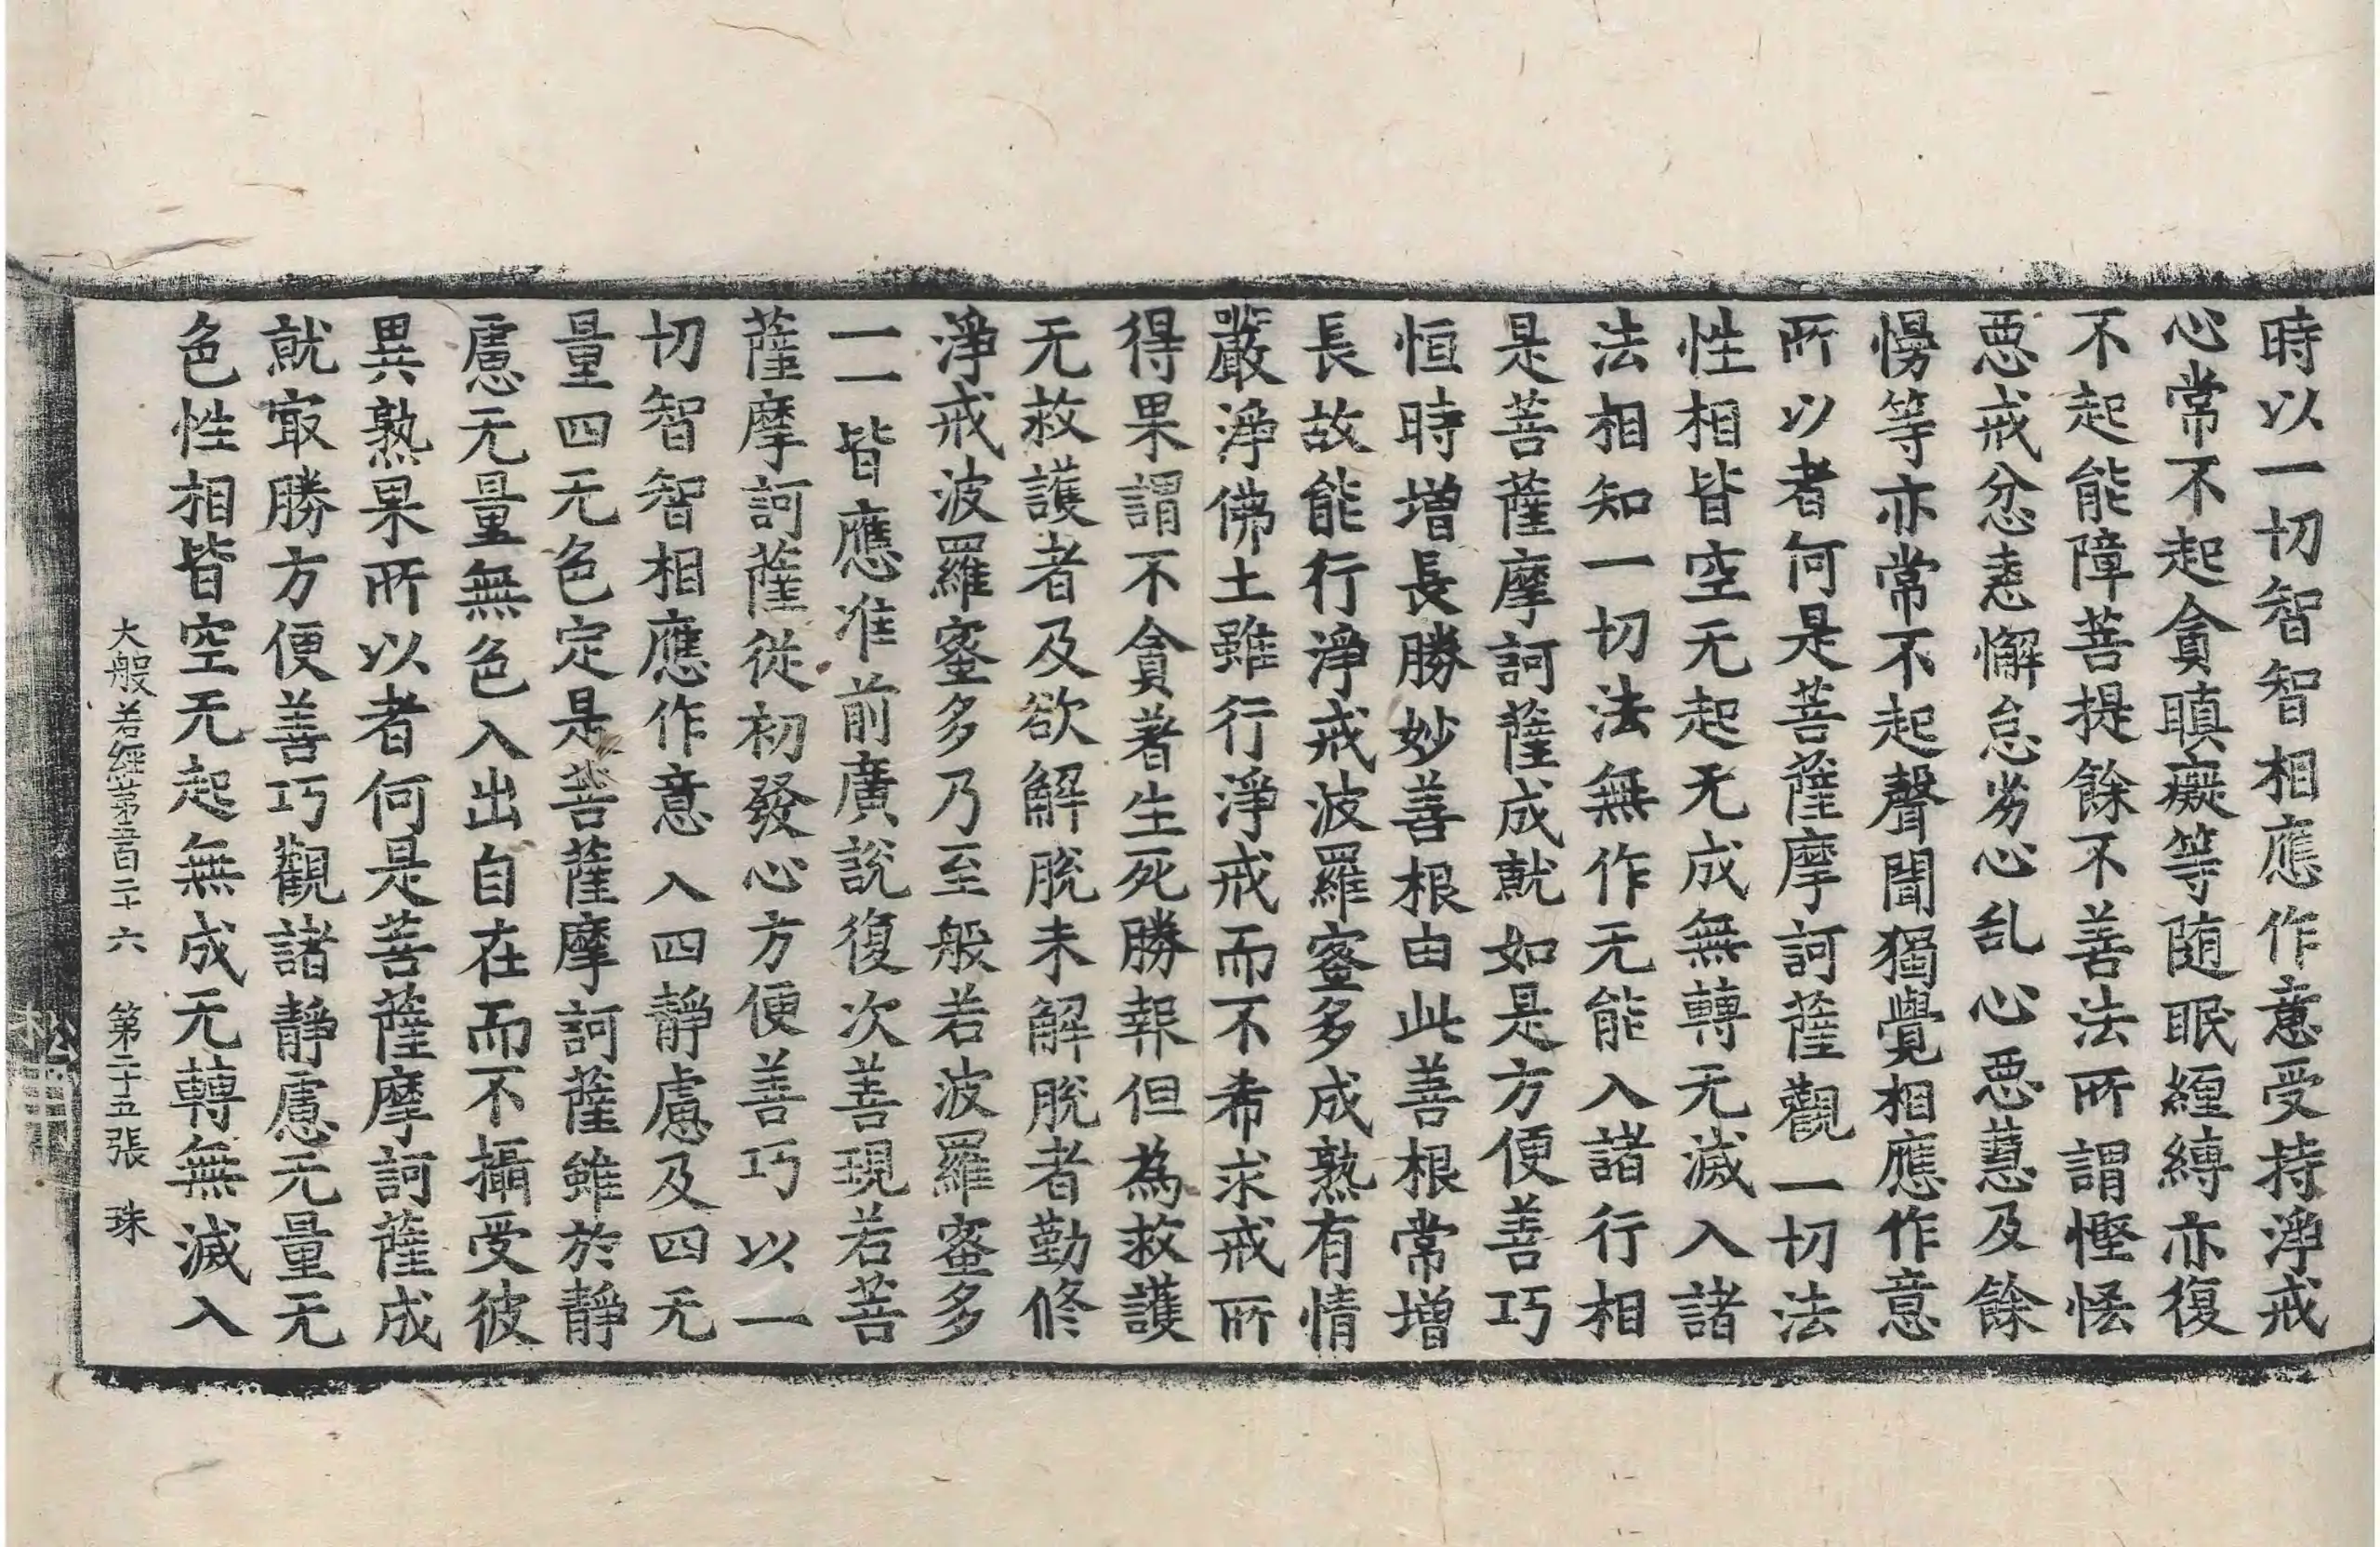 時以一切智智相應作意受持淨戒
心常不起貪瞋癡等随眠纏縛亦復
不起能障菩提餘不善法所謂慳恡
惡戒忿恚懈怠劣心乱心惡慧及餘
慢等亦常不起聲聞獨覺相應作意
所以者何是菩薩摩訶薩觀一切法
性相皆空无起无成無轉无滅入諸
法相知一切法無作无能入諸行相
是菩薩摩訶薩成就如是方便善巧
恒時增長勝妙善根由此善根常增
長故能行淨戒波羅蜜多成熟有情
嚴淨佛土雖行淨戒而不希求戒所
得果謂不貪著生死勝報但為救護
无救護者及欲解脫未解脫者勤修
淨戒波羅蜜多乃至般若波羅蜜多
一一皆應准前廣說復次善現若菩
薩摩訶薩從初發心方便善巧以一
切智智相應作意入四靜慮及四无
量四无色定是菩薩摩訶薩雖於靜
慮无量無色入出自在而不攝受彼
異熟果所以者何是菩薩摩訶薩成
就㝡勝方便善巧觀諸靜慮无量无
色性相皆空无起無成无轉無滅入
大般若經第五百二十六 第二十五張 珠